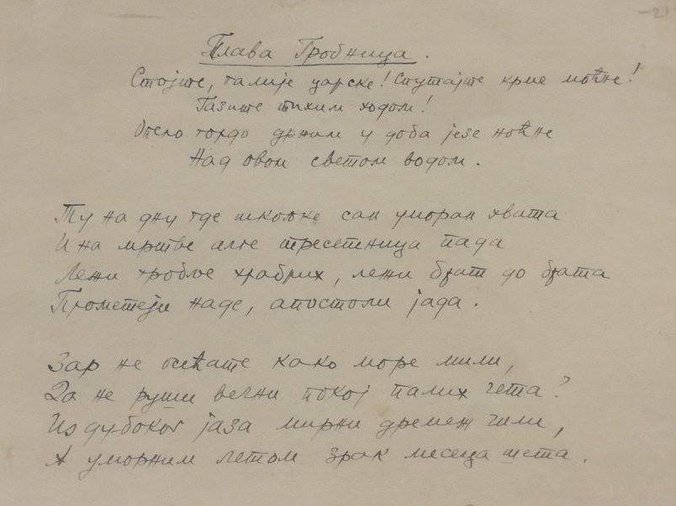 Плава Гробница.
Стојте, галије царске! Спутајте крме моћне!
Газите тихим ходом!
Опело гордо држим у доба језе ноћне
Над овом светом водом.
Ту на дну где шкољке сан уморан хвата
И на мртве алге тресетница пада
Лежи гробље храбрих, лежи брат до брата
Прометеји наде, апостоли јада.
Зар не осећате како море мили,
Да не руши вечни покој палих чета?
Из дубоког јаза мирни дремеж чили,
А уморним летом зрак месеца шета.